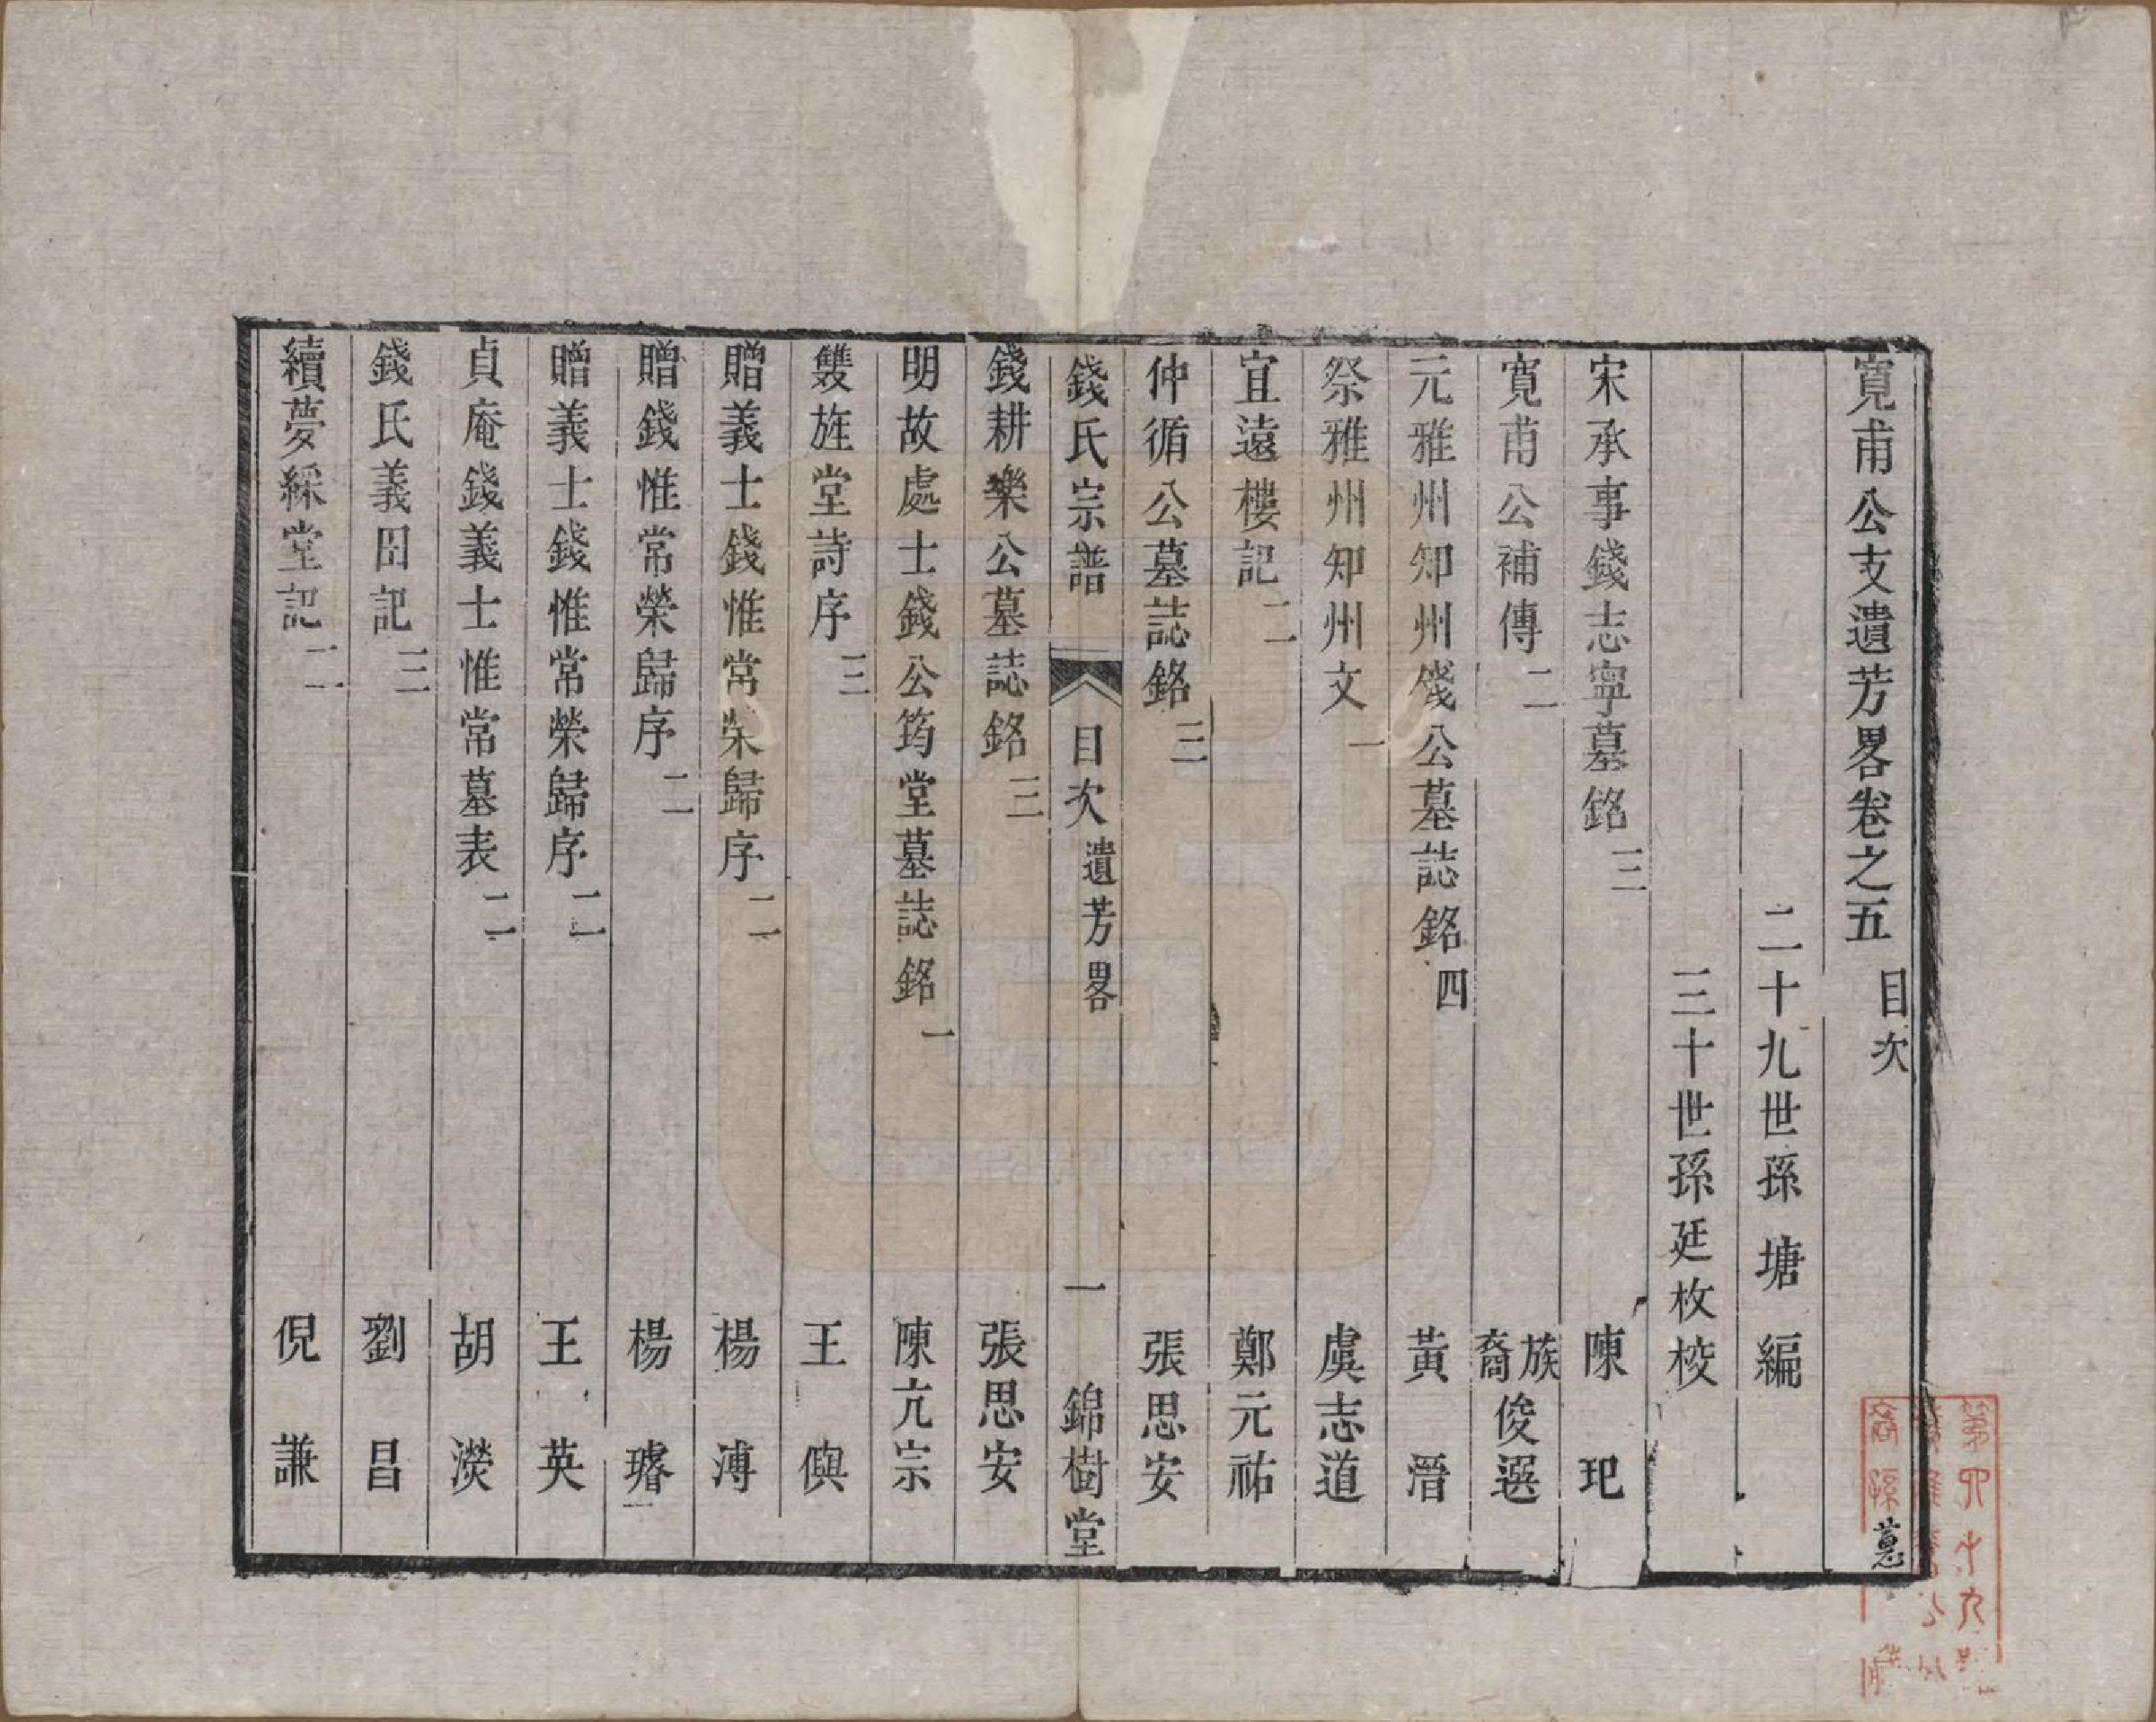 寬甫公支遺芳畧卷之五 目次
二十九世孫 塘 編
三十世孫廷枚校
宋承事錢志寧墓銘 三 陳玘
寬甫公補傳 二 族裔俊選
元雅州知州錢公墓誌銘 四 黃溍
祭雅州知州文 一 虞志道
宜遠樓記 二 鄭元祐
仲循公墓誌銘 三 張思安
錢氏宗譜 目次 遺芳畧 一 錦樹堂
錢耕樂公墓誌銘 三 張思安
明故處士錢公筠堂墓誌銘 一 陳亢宗
雙旌堂詩序 三 王㒜
贈義士錢惟常榮歸序 二 楊溥
贈錢惟常榮歸序 二 楊璿
贈義士錢惟常榮歸序 二 王英
貞庵錢義士惟常墓表 二 胡濙
錢氏義田記 三 劉昌
續夢綵堂記 二 倪謙